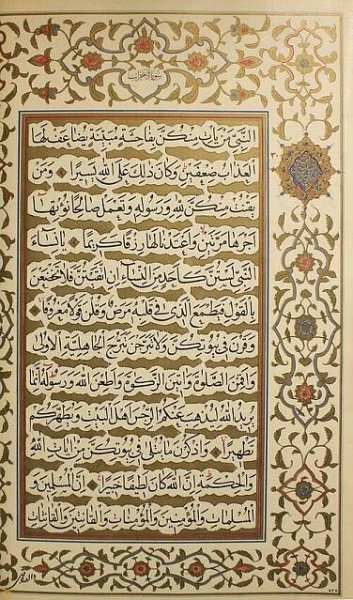 سورة الاحزاب
النَّبِيِّ مَنْ يَأْتِ مِنْكُنَّ بِفَاحِشَةٍ مُبَيِّنَةٍ يُضَاعَفْ لَهَا
الْعَذَابُ ضِعْفَيْنِ وَكَانَ ذَلِكَ عَلَى اللهِ يَسِيرًا وَمَنْ
يَقْنُتْ مِنْكُنَّ لِلّهِ وَرَسُولِهِ وَتَعْمَلْ صَالِحًا نُؤْتِهَا
أَجْرَهَا مَرَّتَيْنِ وَأَعْتَدْنَا لَهَا رِزْقًا كَرِيمًا يَا نِسَاءَ
النَّبِيِّ لَسْتُنَّ كَأَحَدٍ مِنَ النِّسَاءِ إِنِ اتَّقَيْتُنَّ فَلَا تَخْضَعْنَ
بِالْقَوْلِ فَيَطْمَعَ الَّذِي فِي قَلْبِهِ مَرَضٌ وَقُلْنَ قَوْلًا مَعْرُوفًا
وَقَرْنَ فِي بُيُوتِكُنَّ وَلَا تَبَرَّجْنَ تَبَرُّجَ الْجَاهِلِيَّةِ الْأُولَى
وَأَقِمْنَ الصَّلوةَ وَآتِينَ الزَّكوةَ وَأَطِعْنَ اللهَ وَرَسُولَهُ إِنَّمَا
يُرِيدُ اللهُ لِيُذْهِبَ عَنْكُمُ الرِّجْسَ أَهْلَ الْبَيْتِ وَيُطَهِّرَكُمْ
تَطْهِيرًا وَاذْكُرْنَ مَا يُتْلَى فِي بُيُوتِكُنَّ مِنْ آيَاتِ اللهِ
وَالْحِكْمَةِ إِنَّ اللهَ كَانَ لَطِيفًا خَبِيرًا إِنَّ الْمُسْلِمِينَ وَ
الْمُسْلِمَاتِ وَالْمُؤْمِنِينَ وَالْمُؤْمِنَاتِ وَالْقَانِتِينَ وَالْقَانِتَاتِ